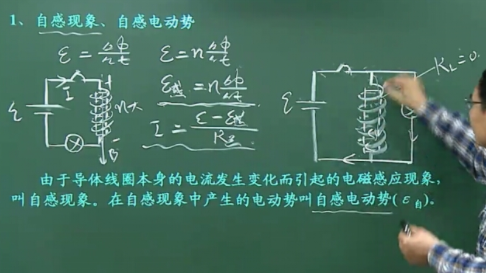 1、自感现象、自感电动势
ε = Δφ/Δt ε = nΔφ/Δt
ε感 = nΔφ/Δt
I = (ε - ε感)/R总
ε I n大 B
ε RL=0
由于导体线圈本身的电流发生变化而引起的电磁感应现象,
叫自感现象。在自感现象中产生的电动势叫自感电动势(ε自)。